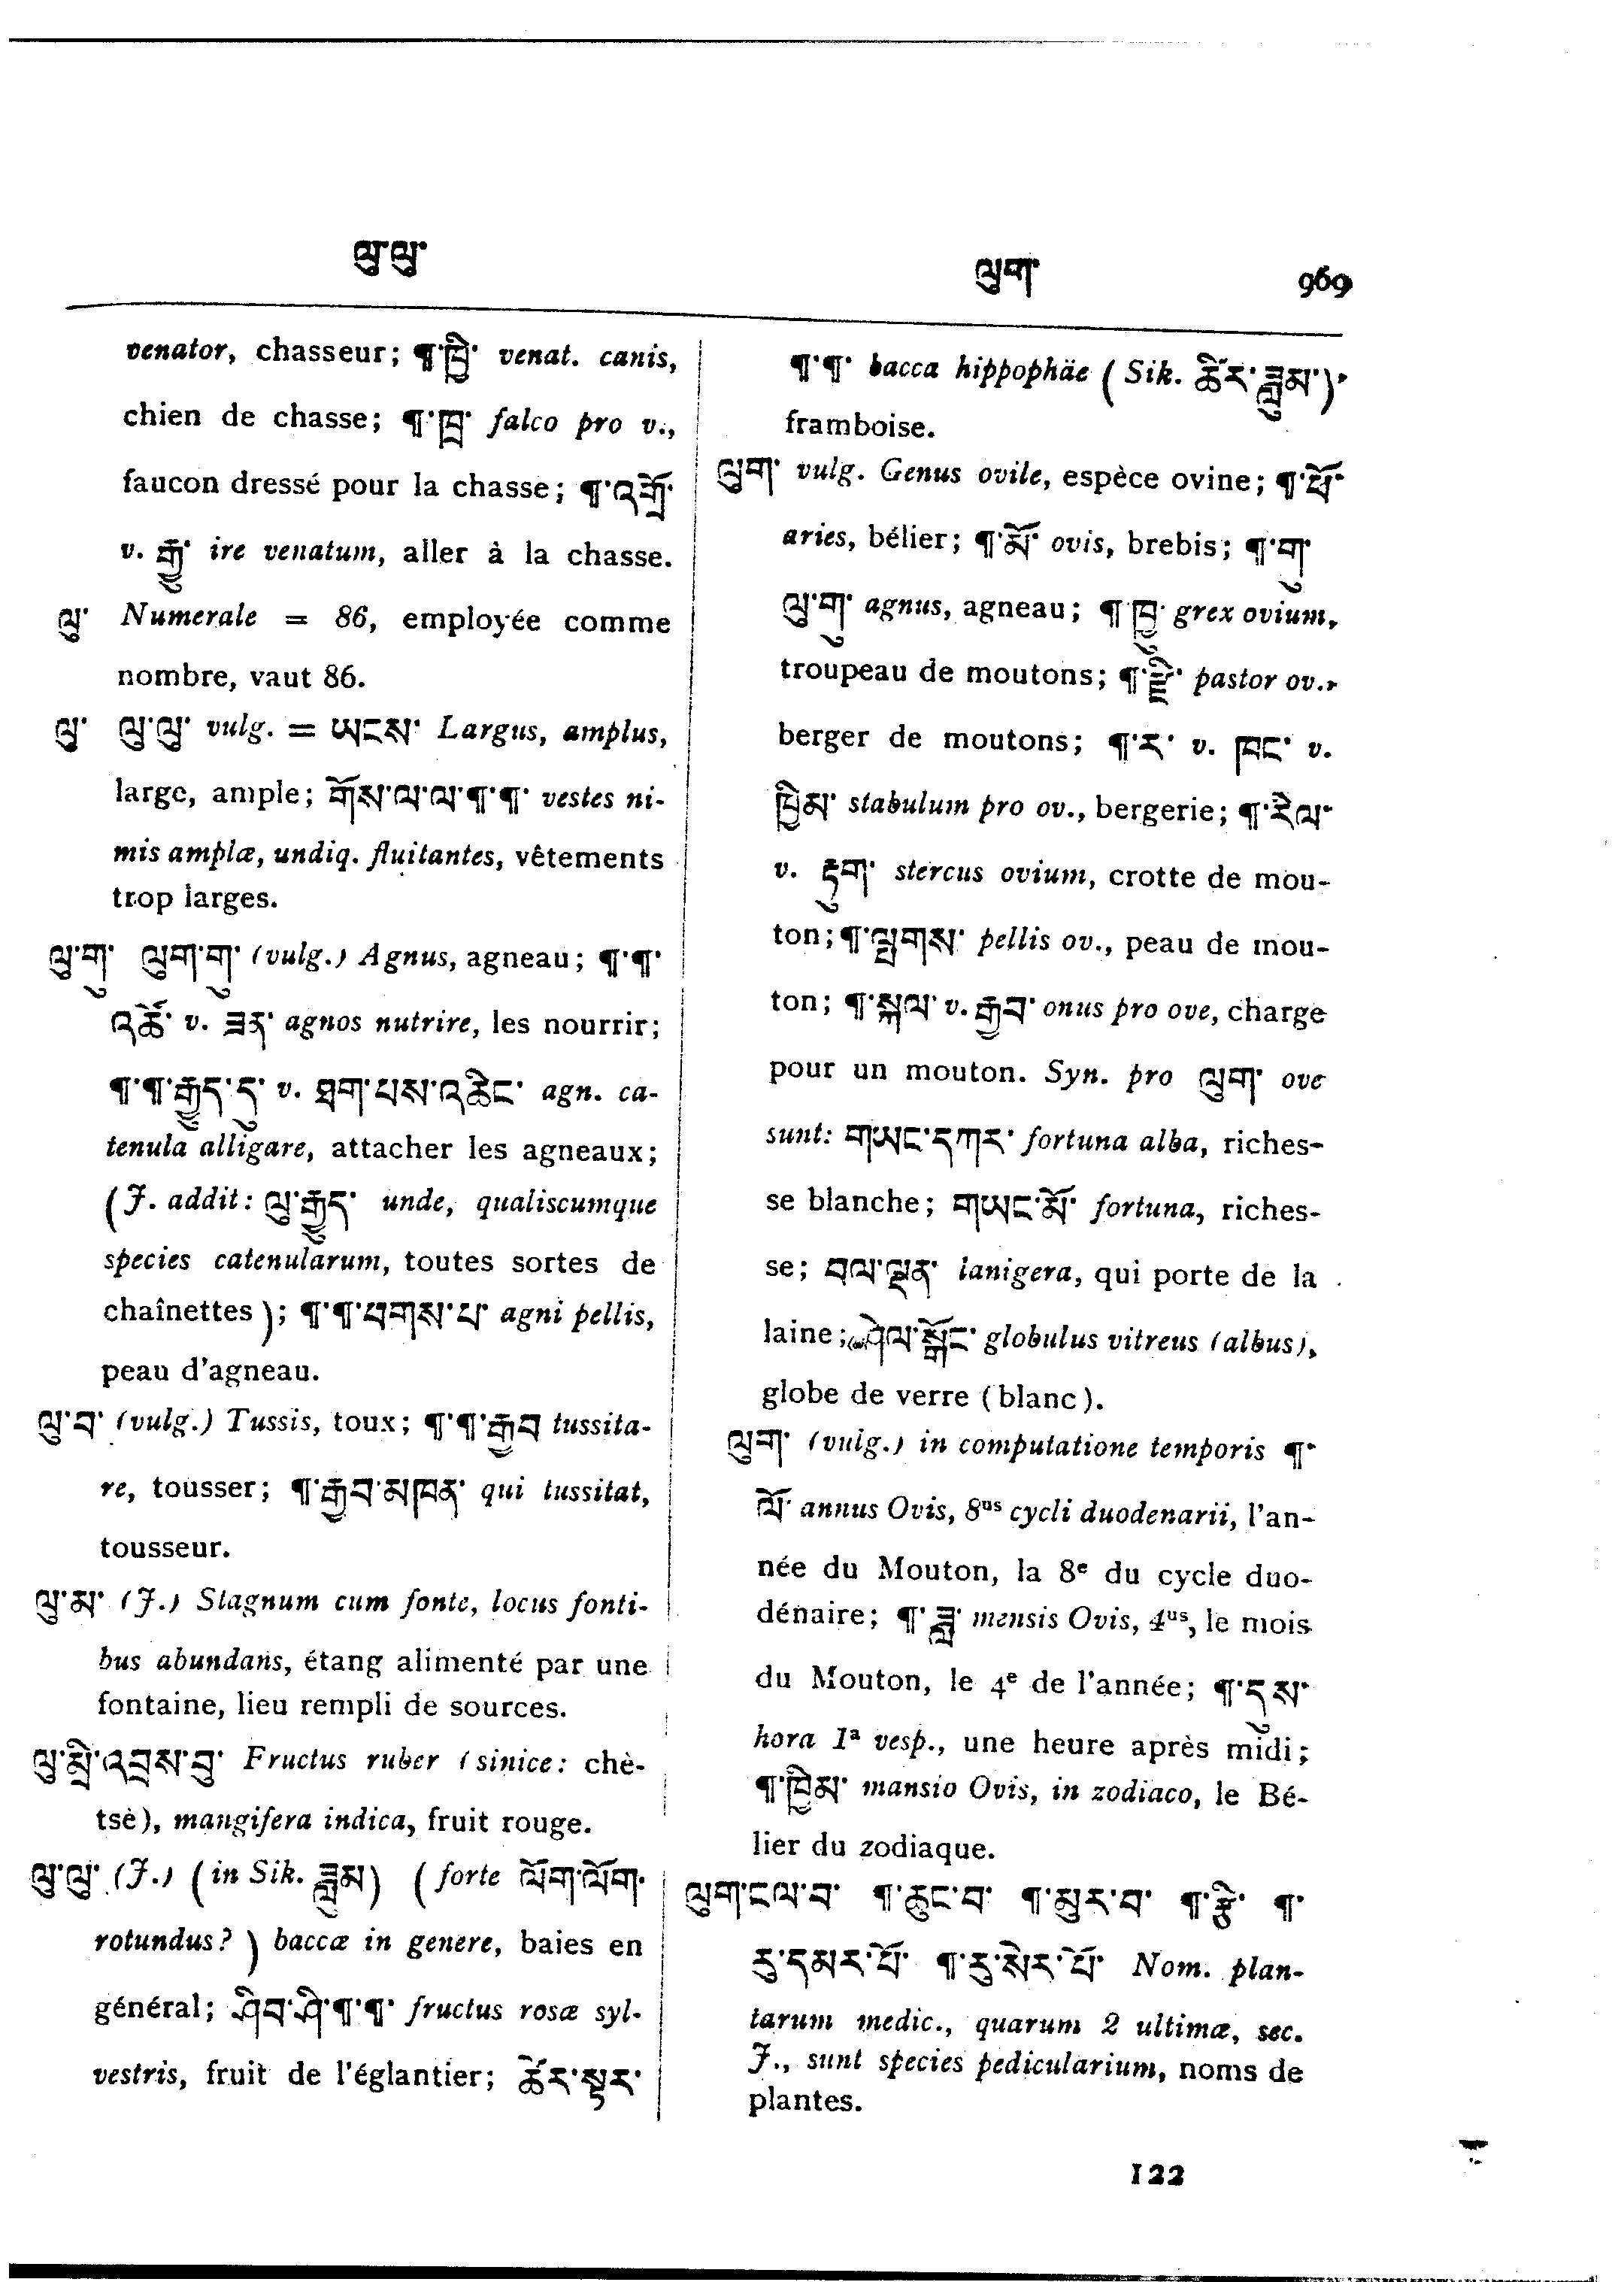 ལུ་ལུ་
ལུག་
969
venator, chasseur; ¶་ཁྱི་ venat. canis,
chien de chasse; ¶་ཁྲ་ falco pro v.,
faucon dressé pour la chasse; ¶་འགྲོ་
v. རྒྱུ་ ire venatum, aller à la chasse.
ལུ་ Numerale = 86, employée comme
nombre, vaut 86.
ལུ་ ལུ་ལུ་ vulg. = ཡངས་ Largus, amplus,
large, ample; གོས་ལ་ལ་¶་¶་ vestes ni-
mis amplæ, undiq. fluitantes, vêtements
trop larges.
ལུ་གུ་ ལུག་གུ་ (vulg.) Agnus, agneau; ¶་¶་
འཚོ་ v. ཟན་ agnos nutrire, les nourrir;
¶་¶་རྒྱུད་དུ་ v. ཐག་པས་འཆིང་ agn. ca-
tenula alligare, attacher les agneaux;
(J. addit: ལུ་རྒྱུད་ unde, qualiscumque
species catenularum, toutes sortes de
chaînettes); ¶་¶་པགས་པ་ agni pellis,
peau d'agneau.
ལུ་བ་ (vulg.) Tussis, toux; ¶་¶་རྒྱབ tussita-
re, tousser; ¶་རྒྱབ་མཁན་ qui tussitat,
tousseur.
ལུ་མ་ (J.) Stagnum cum fonte, locus fonti-
bus abundans, étang alimenté par une
fontaine, lieu rempli de sources.
ལུ་མྲི་འབྲས་བུ་ Fructus ruber (sinice: chè-
tsè), mangifera indica, fruit rouge.
ལུ་ལུ་ (J.) (in Sik. ཟླུམ) (forte ལོག་ལོག་
rotundus?) baccæ in genere, baies en
général; ཤིབ་ཤི་¶་¶་ fructus rosæ syl-
vestris, fruit de l'églantier; ཚེར་སྟར་
¶་¶་ bacca hippophäe (Sik. ཚེར་ཟླུམ་),
framboise.
ལུག་ vulg. Genus ovile, espèce ovine; ¶་ཕོ་
aries, bélier; ¶་མོ་ ovis, brebis; ¶་གུ་
ལུ་གུ་ agnus, agneau; ¶ ཁྱུ་ grex ovium,
troupeau de moutons; ¶་རྫི་ pastor ov.,
berger de moutons; ¶་ར་ v. ཁང་ v.
ཁྱིམ་ stabulum pro ov., bergerie; ¶་རིལ་
v. རྟུག་ stercus ovium, crotte de mou-
ton; ¶་ལྤགས་ pellis ov., peau de mou-
ton; ¶་སྐལ་ v. རྒྱབ་ onus pro ove, charge
pour un mouton. Syn. pro ལུག་ ove
sunt: གཡང་དཀར་ fortuna alba, riches-
se blanche; གཡང་མོ་ fortuna, riches-
se; བལ་ལྡན་ lanigera, qui porte de la
laine; ཤེལ་སྒོང་ globulus vitreus (albus),
globe de verre (blanc).
ལུག་ (vulg.) in computatione temporis ¶་
ལོ་ annus Ovis, 8us cycli duodenarii, l'an-
née du Mouton, la 8e du cycle duo-
dénaire; ¶་ཟླ་ mensis Ovis, 4us, le mois
du Mouton, le 4e de l'année; ¶་དུས་
hora 1a vesp., une heure après midi;
¶་ཁྱིམ་ mansio Ovis, in zodiaco, le Bé-
lier du zodiaque.
ལུག་ངལ་བ་ ¶་ཆུང་བ་ ¶་མུར་བ་ ¶་རྩི་ ¶་
རུ་དམར་པོ་ ¶་རུ་སེར་པོ་ Nom. plan-
tarum medic., quarum 2 ultimæ, sec.
J., sunt species pedicularium, noms de
plantes.
122